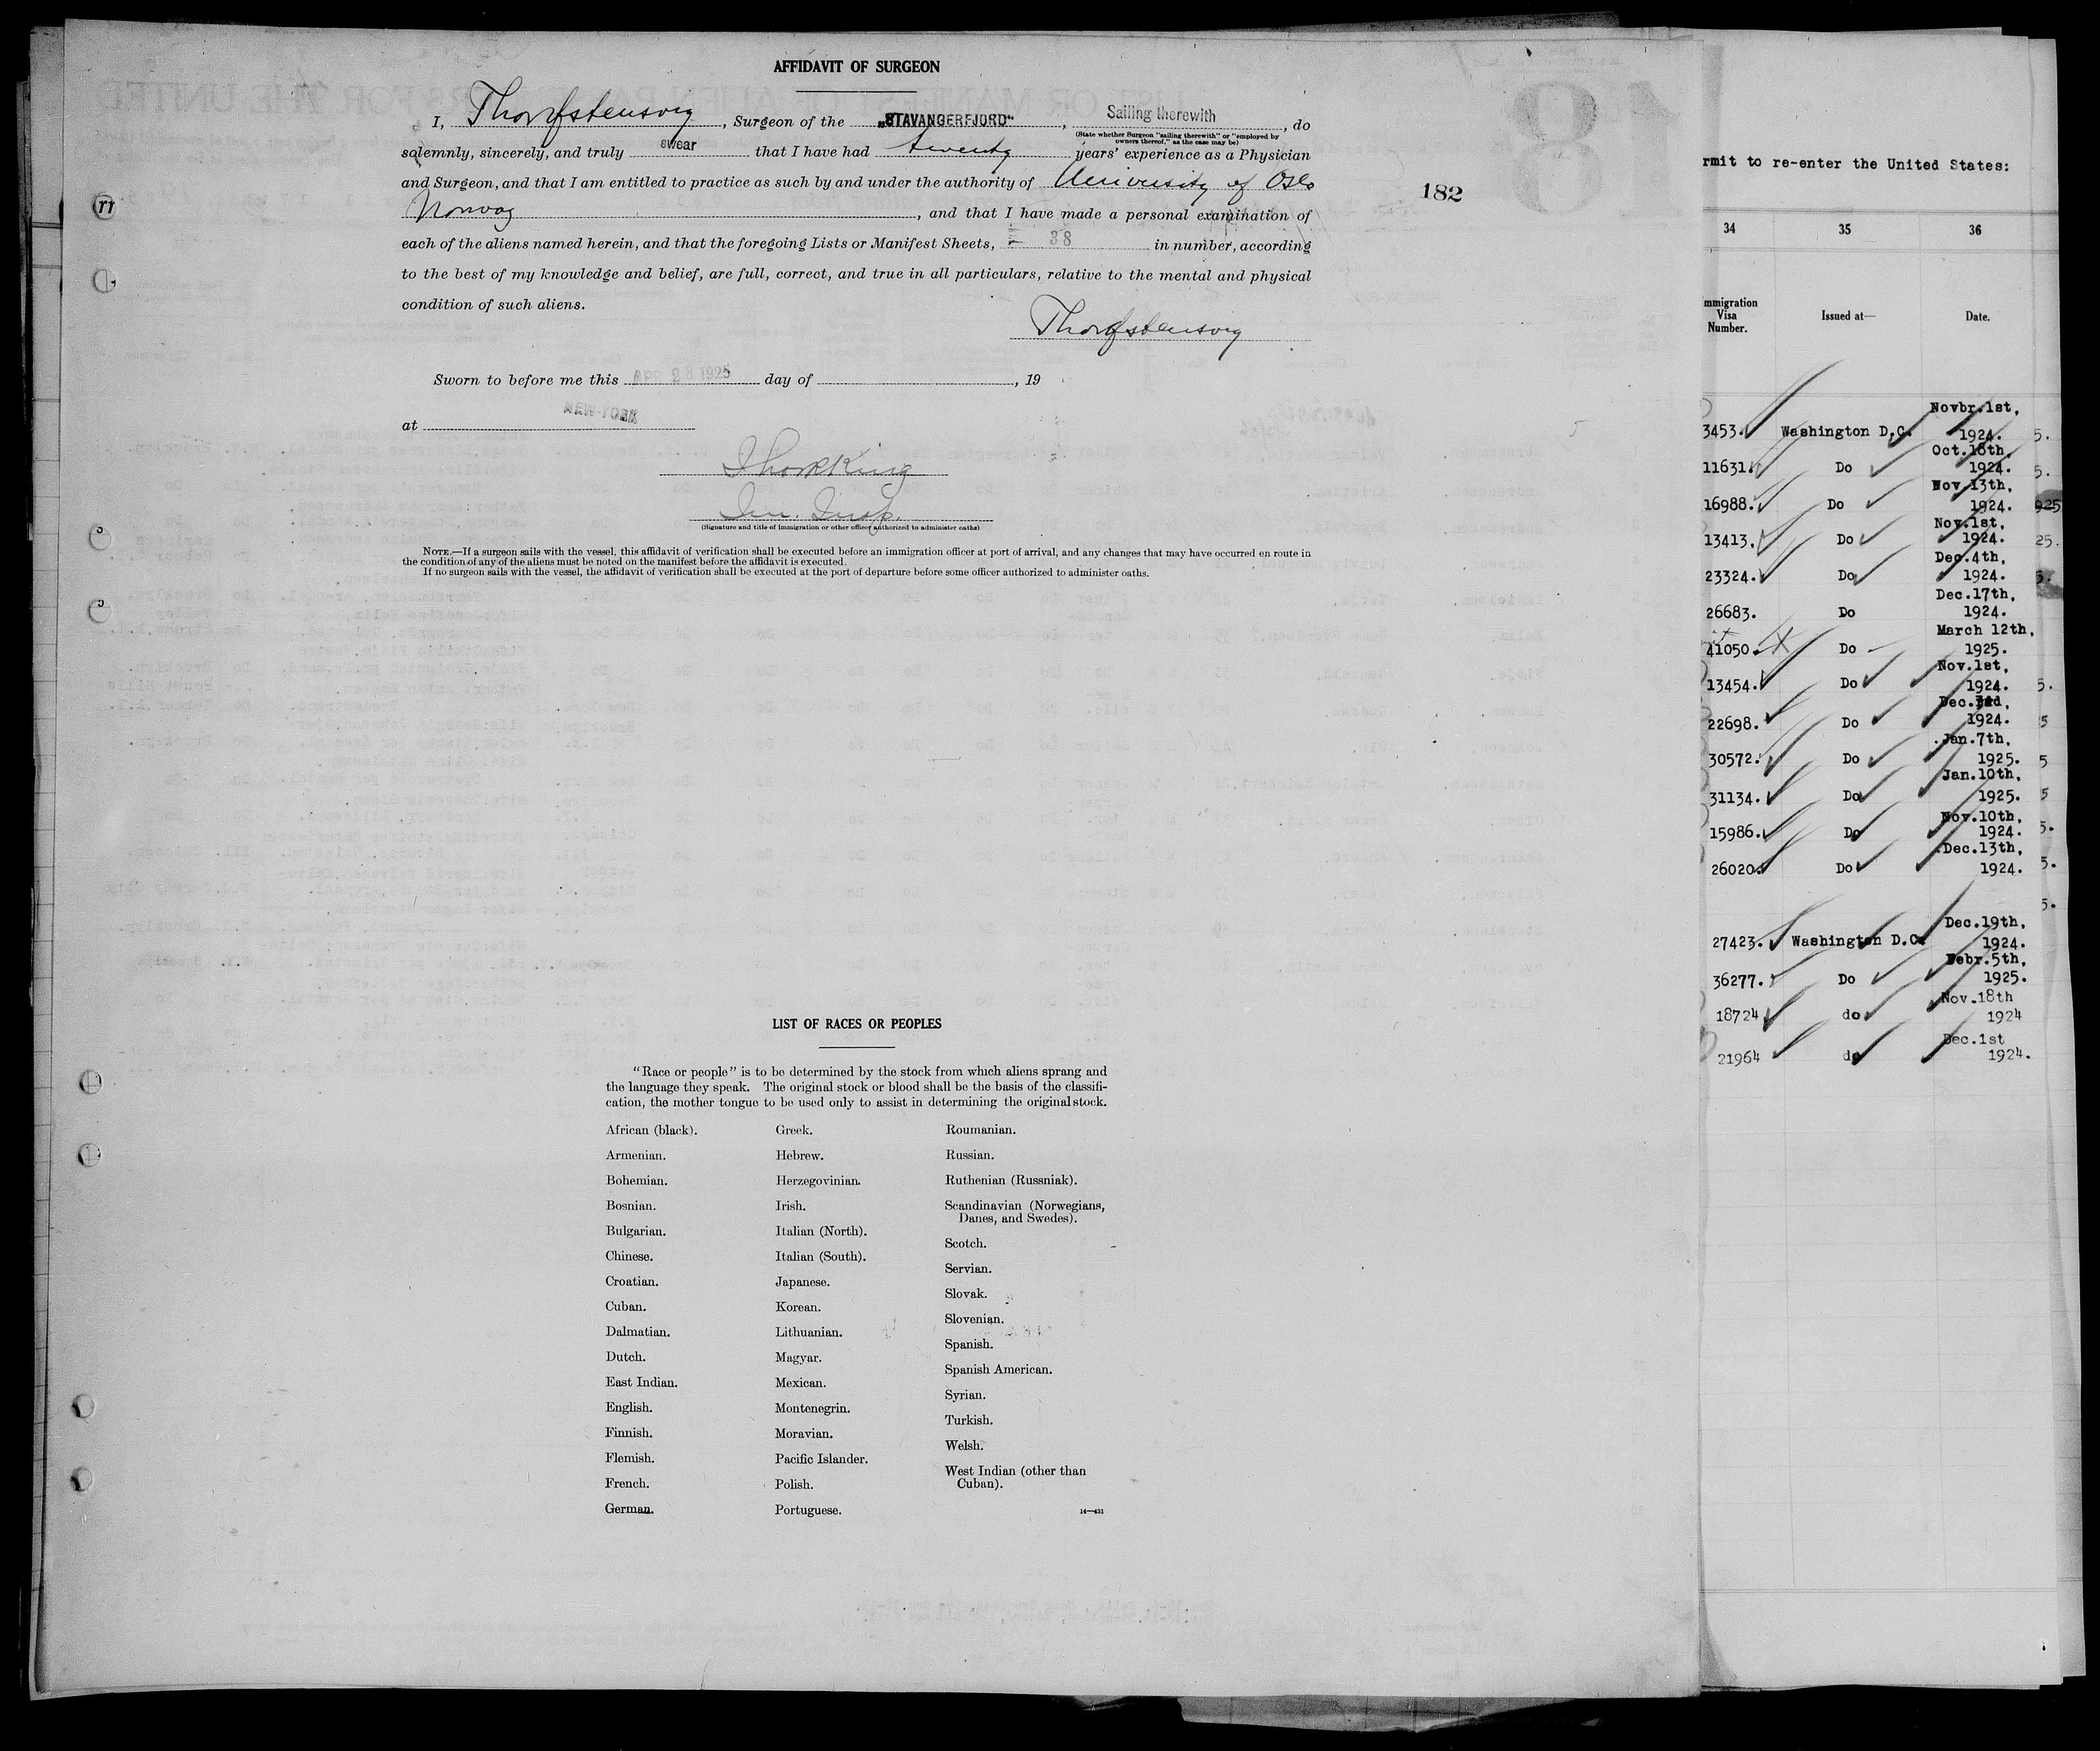 AFFIDAVIT OF SURGEON
I, Thorfstensvig, Surgeon of the „STAVANGERFJORD“, Sailing therewith, do
(State whether Surgeon "sailing therewith" or "employed by owners thereof," as the case may be)
solemnly, sincerely, and truly swear that I have had twenty years' experience as a Physician
and Surgeon, and that I am entitled to practice as such by and under the authority of University of Oslo
Norway, and that I have made a personal examination of
each of the aliens named herein, and that the foregoing Lists or Manifest Sheets, 38 in number, according
to the best of my knowledge and belief, are full, correct, and true in all particulars, relative to the mental and physical
condition of such aliens.
Thorfstensvig
Sworn to before me this APR 28 1925 day of , 19
at NEW-YORK
Imm. Insp.
(Signature and title of immigration or other officer authorized to administer oaths)
NOTE.—If a surgeon sails with the vessel, this affidavit of verification shall be executed before an immigration officer at port of arrival, and any changes that may have occurred en route in
the condition of any of the aliens must be noted on the manifest before the affidavit is executed.
If no surgeon sails with the vessel, the affidavit of verification shall be executed at the port of departure before some officer authorized to administer oaths.
182
LIST OF RACES OR PEOPLES
"Race or people" is to be determined by the stock from which aliens sprang and
the language they speak. The original stock or blood shall be the basis of the classifi-
cation, the mother tongue to be used only to assist in determining the original stock.
African (black).
Armenian.
Bohemian.
Bosnian.
Bulgarian.
Chinese.
Croatian.
Cuban.
Dalmatian.
Dutch.
East Indian.
English.
Finnish.
Flemish.
French.
German.
Greek.
Hebrew.
Herzegovinian.
Irish.
Italian (North).
Italian (South).
Japanese.
Korean.
Lithuanian.
Magyar.
Mexican.
Montenegrin.
Moravian.
Pacific Islander.
Polish.
Portuguese.
Roumanian.
Russian.
Ruthenian (Russniak).
Scandinavian (Norwegians,
Danes, and Swedes).
Scotch.
Servian.
Slovak.
Slovenian.
Spanish.
Spanish American.
Syrian.
Turkish.
Welsh.
West Indian (other than
Cuban).
14—431
rmit to re-enter the United States:
34 35 36
mmigration
Visa
Number.
Issued at—
Date.
3453. Washington D.C. Novbr.1st, 1924.
11631. Do Oct.16th, 1924.
16988. Do Nov.13th, 1924.
13413. Do Nov.1st, 1924.
23324. Do Dec.4th, 1924.
26683. Do Dec.17th, 1924.
41050. Do March 12th, 1925.
13454. Do Nov.1st, 1924.
22698. Do Dec. 1924.
30572. Do Jan.7th, 1925.
31134. Do Jan.10th, 1925.
15986. Do Nov.10th, 1924.
26020. Do Dec.13th, 1924.
27423. Washington D.C. Dec.19th, 1924.
36277. Do Febr.5th, 1925.
18724 do Nov.18th 1924
21964 do Dec.1st 1924.